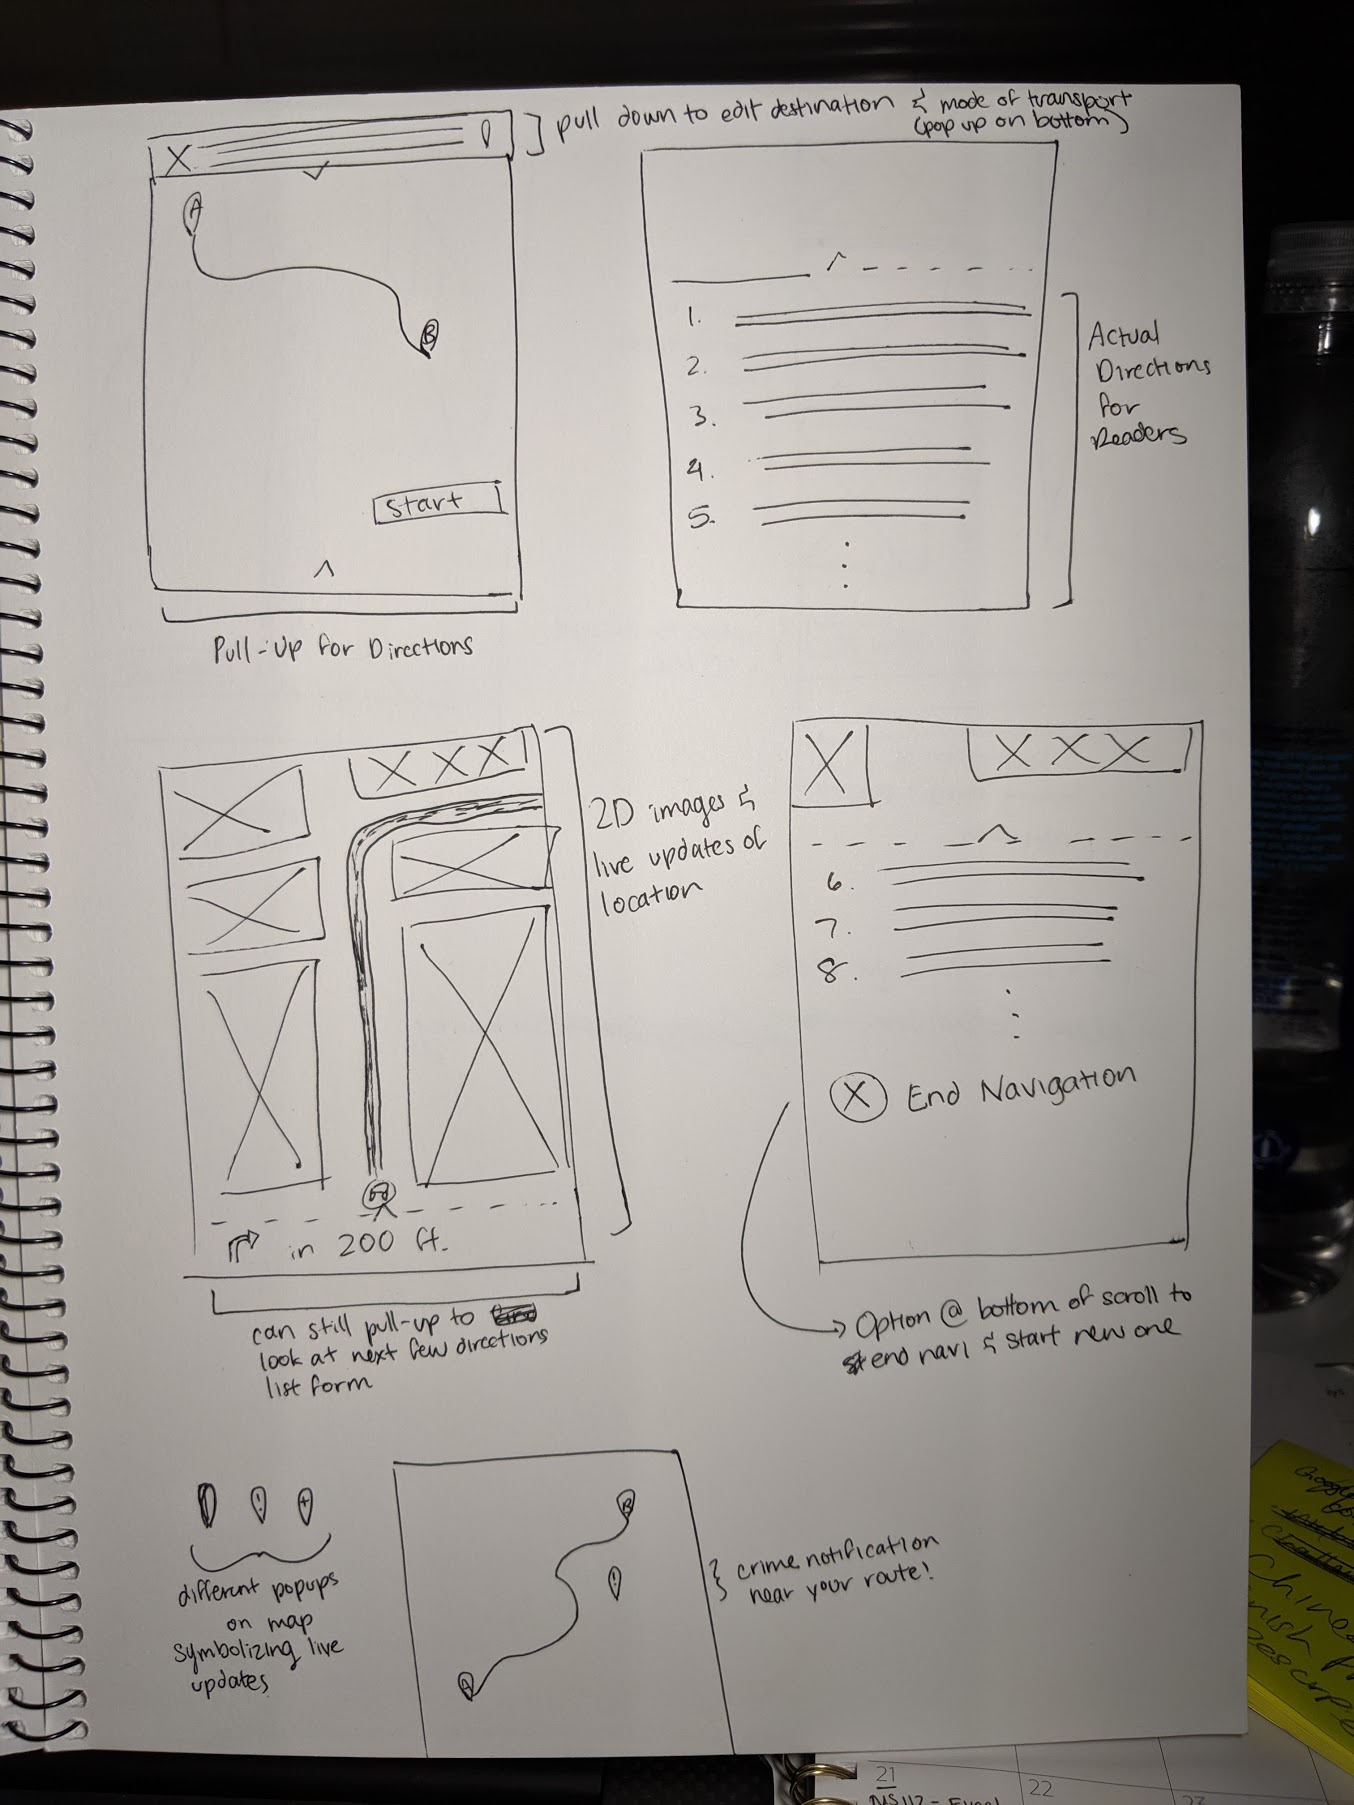 pull down to edit destination & mode of transport
(pop up on bottom)
A
B
start
Pull-Up for Directions
1.
2.
3.
4.
5.
Actual
Directions
for
Readers
2D images &
live updates of
location
in 200 ft.
can still pull-up to
look at next few directions
list form
6.
7.
8.
X End Navigation
Option @ bottom of scroll to
end navi & start new one
! +
different popups
on map
symbolizing live
updates
B
!
A
crime notification
near your route!
21
22
23